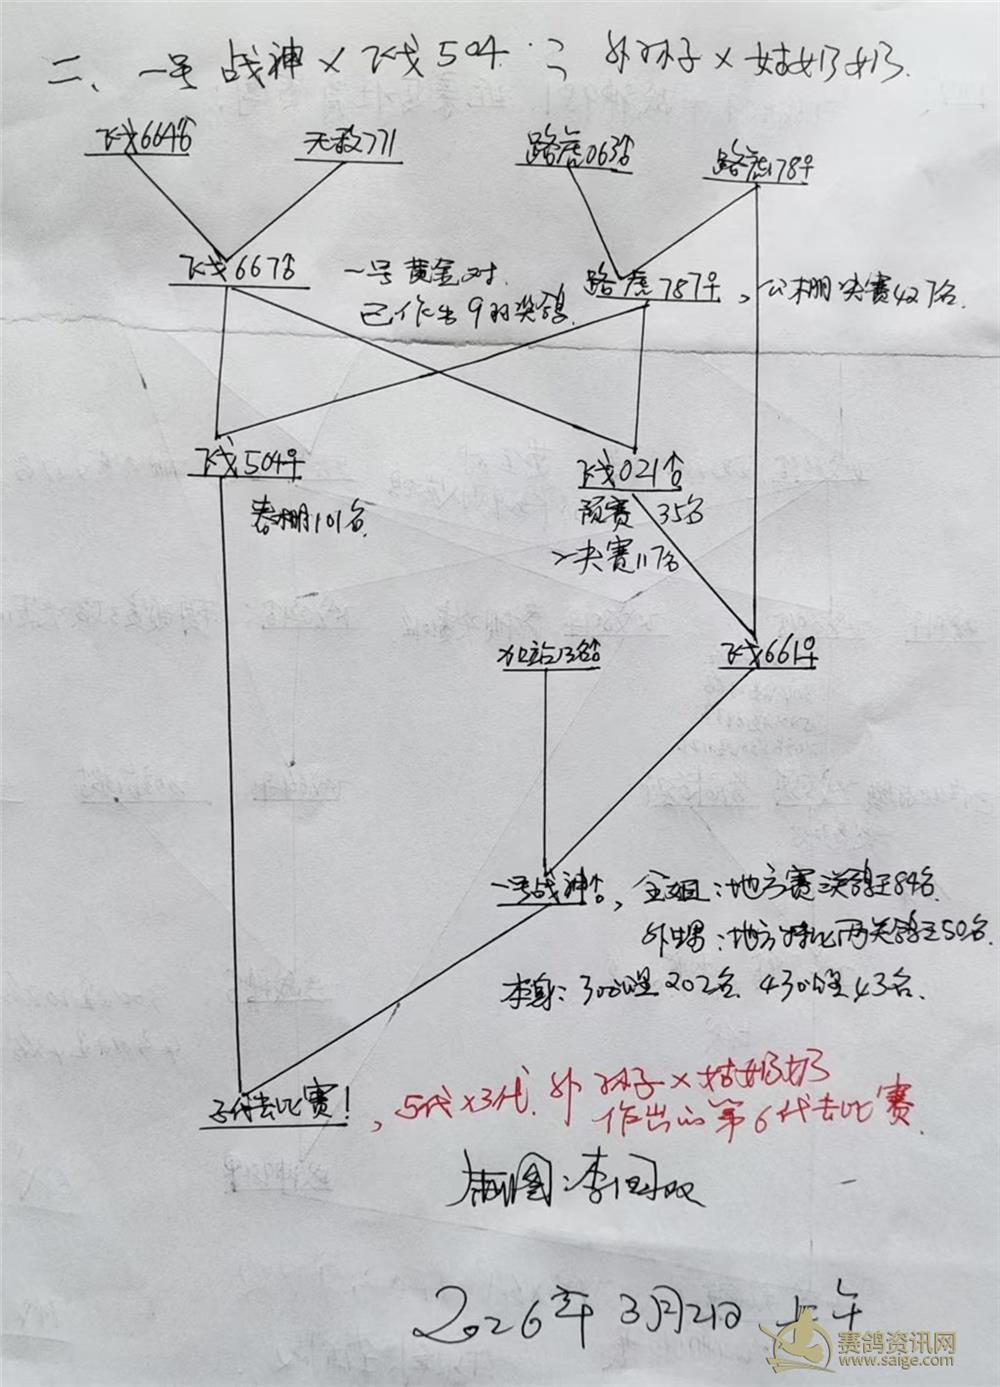 二、一号战神×飞戈504.＝外孙子×姑奶奶.
飞戈664♂
无敌771
路虎063♂
路虎178♀
飞戈667♂
一号黄金对.
已作出9羽奖鸽.
路虎787♀，公棚决赛427名.
飞戈504♀
春棚101名.
飞戈021♂
预赛 35名
决赛117名
加站13名♂
飞戈661♀
一号战神♂，全姐：地方赛三关鸽王84名.
外甥：地方特比两关鸽王50名.
本身：300公里202名. 430公里43名.
子代去比赛！，5代×3代. 外孙子×姑奶奶
作出的第6代去比赛.
制图：李国
2026年3月2日上午
赛鸽资讯网
www.saige.com